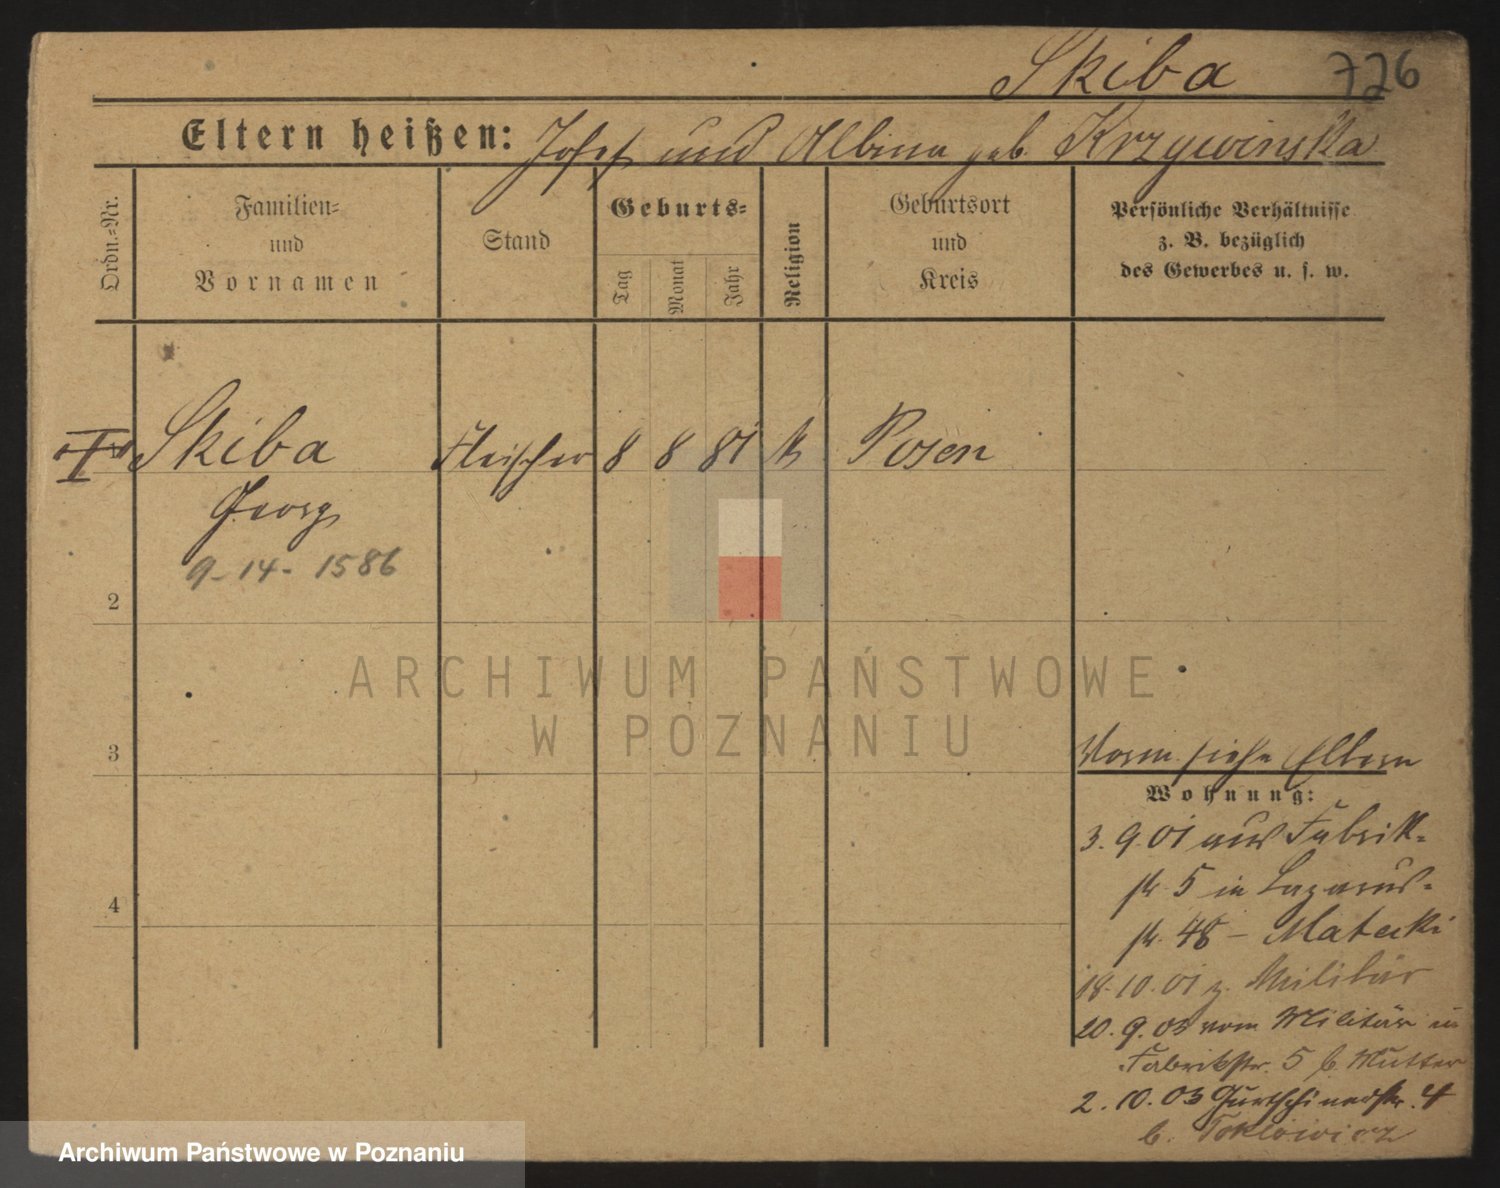 Skiba 726
Eltern heißen: Josef und Albina geb. Krzywinska
Ordn.-Nr.
Familien- und Vornamen
Stand
Geburts-
Tag
Monat
Jahr
Religion
Geburtsort und Kreis
Persönliche Verhältnisse
z. B. bezüglich
des Gewerbes u. s. w.
I Skiba Fleischer 8 8 81 k Posen
Georg
9-14-1586
2
3
4
ARCHIWUM PAŃSTWOWE
W POZNANIU
Vorm. siehe Eltern
Wohnung:
3. 9. 01 aus Fabrik-
str. 5 in Lazarus-
str. 48 – Matecki
18. 10. 01 z. Militär
20. 9. 03 vom Militär in
Fabrikstr. 5 b. Mutter
2. 10. 03 Gurtschinerstr. 4
b.
Archiwum Państwowe w Poznaniu